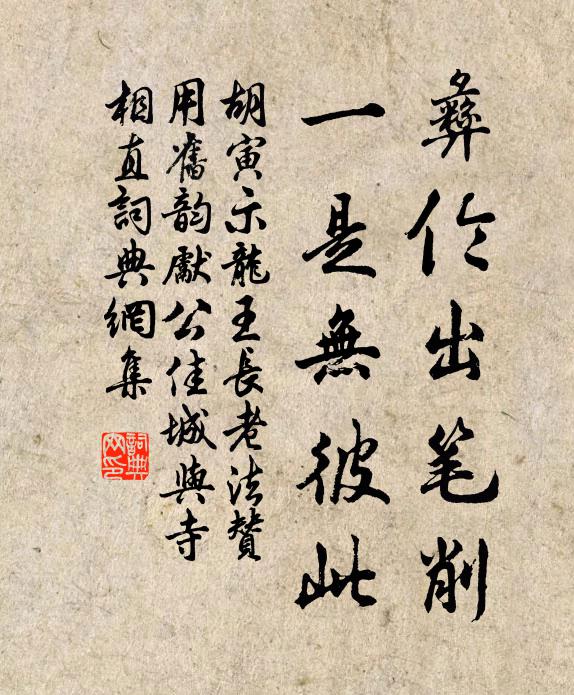 彝伦出笔削
一是無彼此
胡寅示龍王長老法贊
用舊韵獻公佳城與寺
相直詞典網集
詞典网印